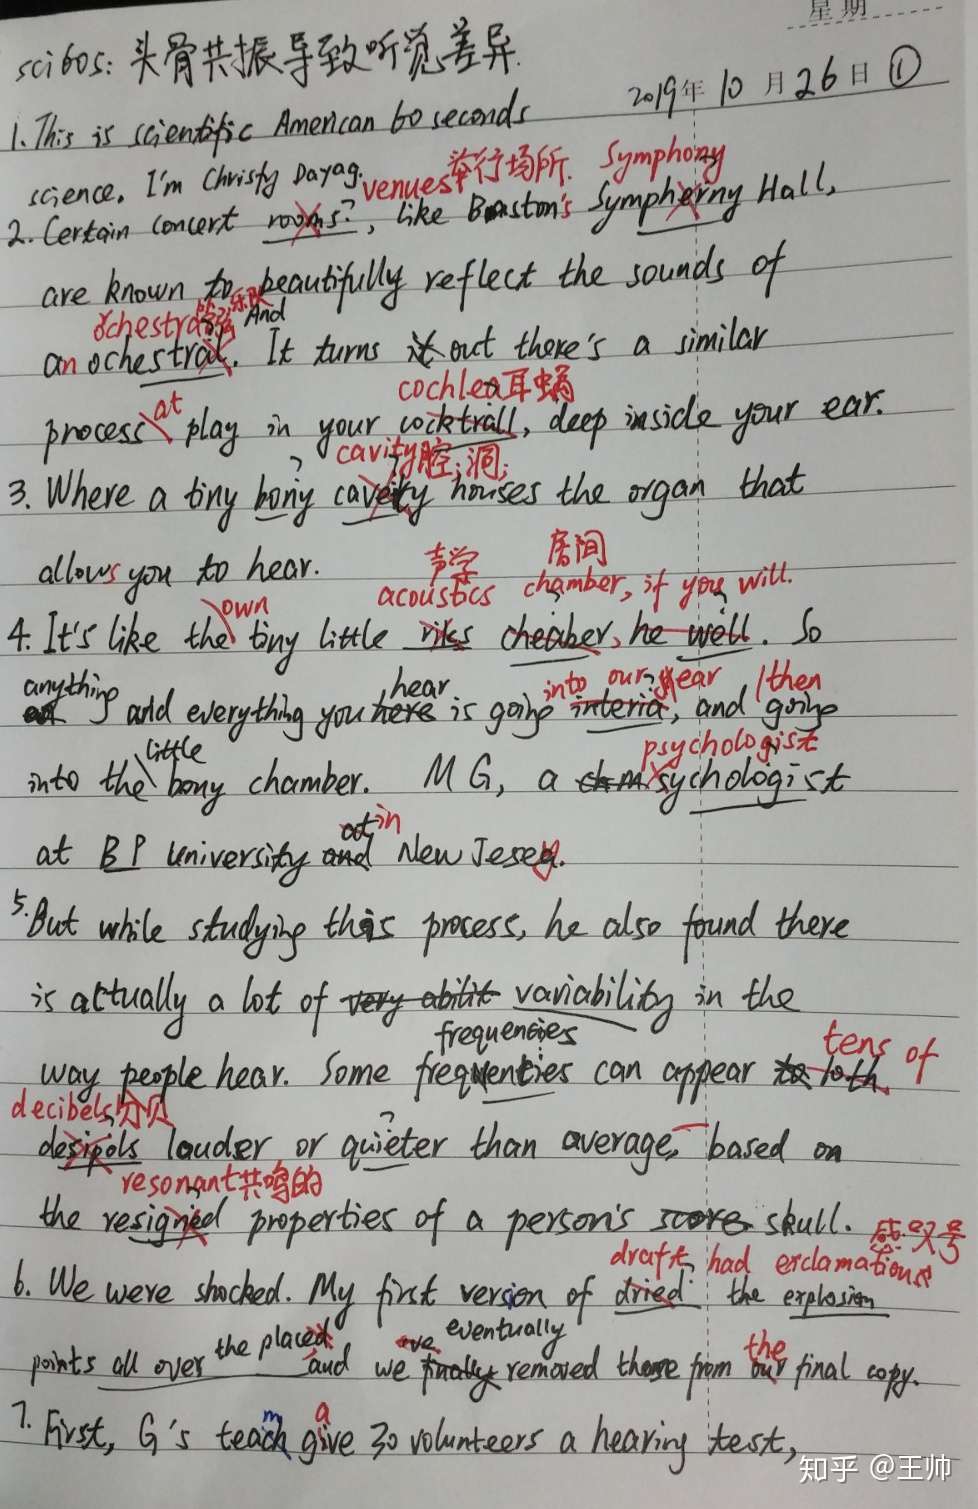 星期
sci60s: 头骨共振导致听觉差异.
2019年 10月26日 ①
1. This is scientific American 60 seconds
science. I'm Christy Dayag.
venues举行场所. Symphony
2. Certain concert rooms?, like Boston's Sympherny Hall,
are known to beautifully reflect the sounds of
orchestra管弦乐队 And
an ochestral. It turns it out there's a similar
at cochlea耳蜗
process play in your cocktrall, deep inside your ear.
cavity腔;洞;
3. Where a tiny bony caverty houses the organ that
allows you to hear.
声学 房间
own acoustics chamber, if you will.
4. It's like the tiny little riks cheaber, he well. So
anything hear into our ear then
and everything you here is going interia, and going
little psychologist
into the bony chamber. M G, a sychologist
at in
at BP University and New Jesey.
5. But while studying this process, he also found there
is actually a lot of very abilit variability in the
frequencies tens of
way people hear. Some frequenties can appear to 10th
decibels分贝 ?
desipols louder or quieter than average, based on
resonant共鸣的
the resignied properties of a person's score skull.
感叹号
draft, had exclamations
6. We were shocked. My first version of dried the explosion
the placed eve eventually the
points all over and we finally removed those from our final copy.
m a
7. First, G's teach give 30 volunteers a hearing test,
知乎 @王帅